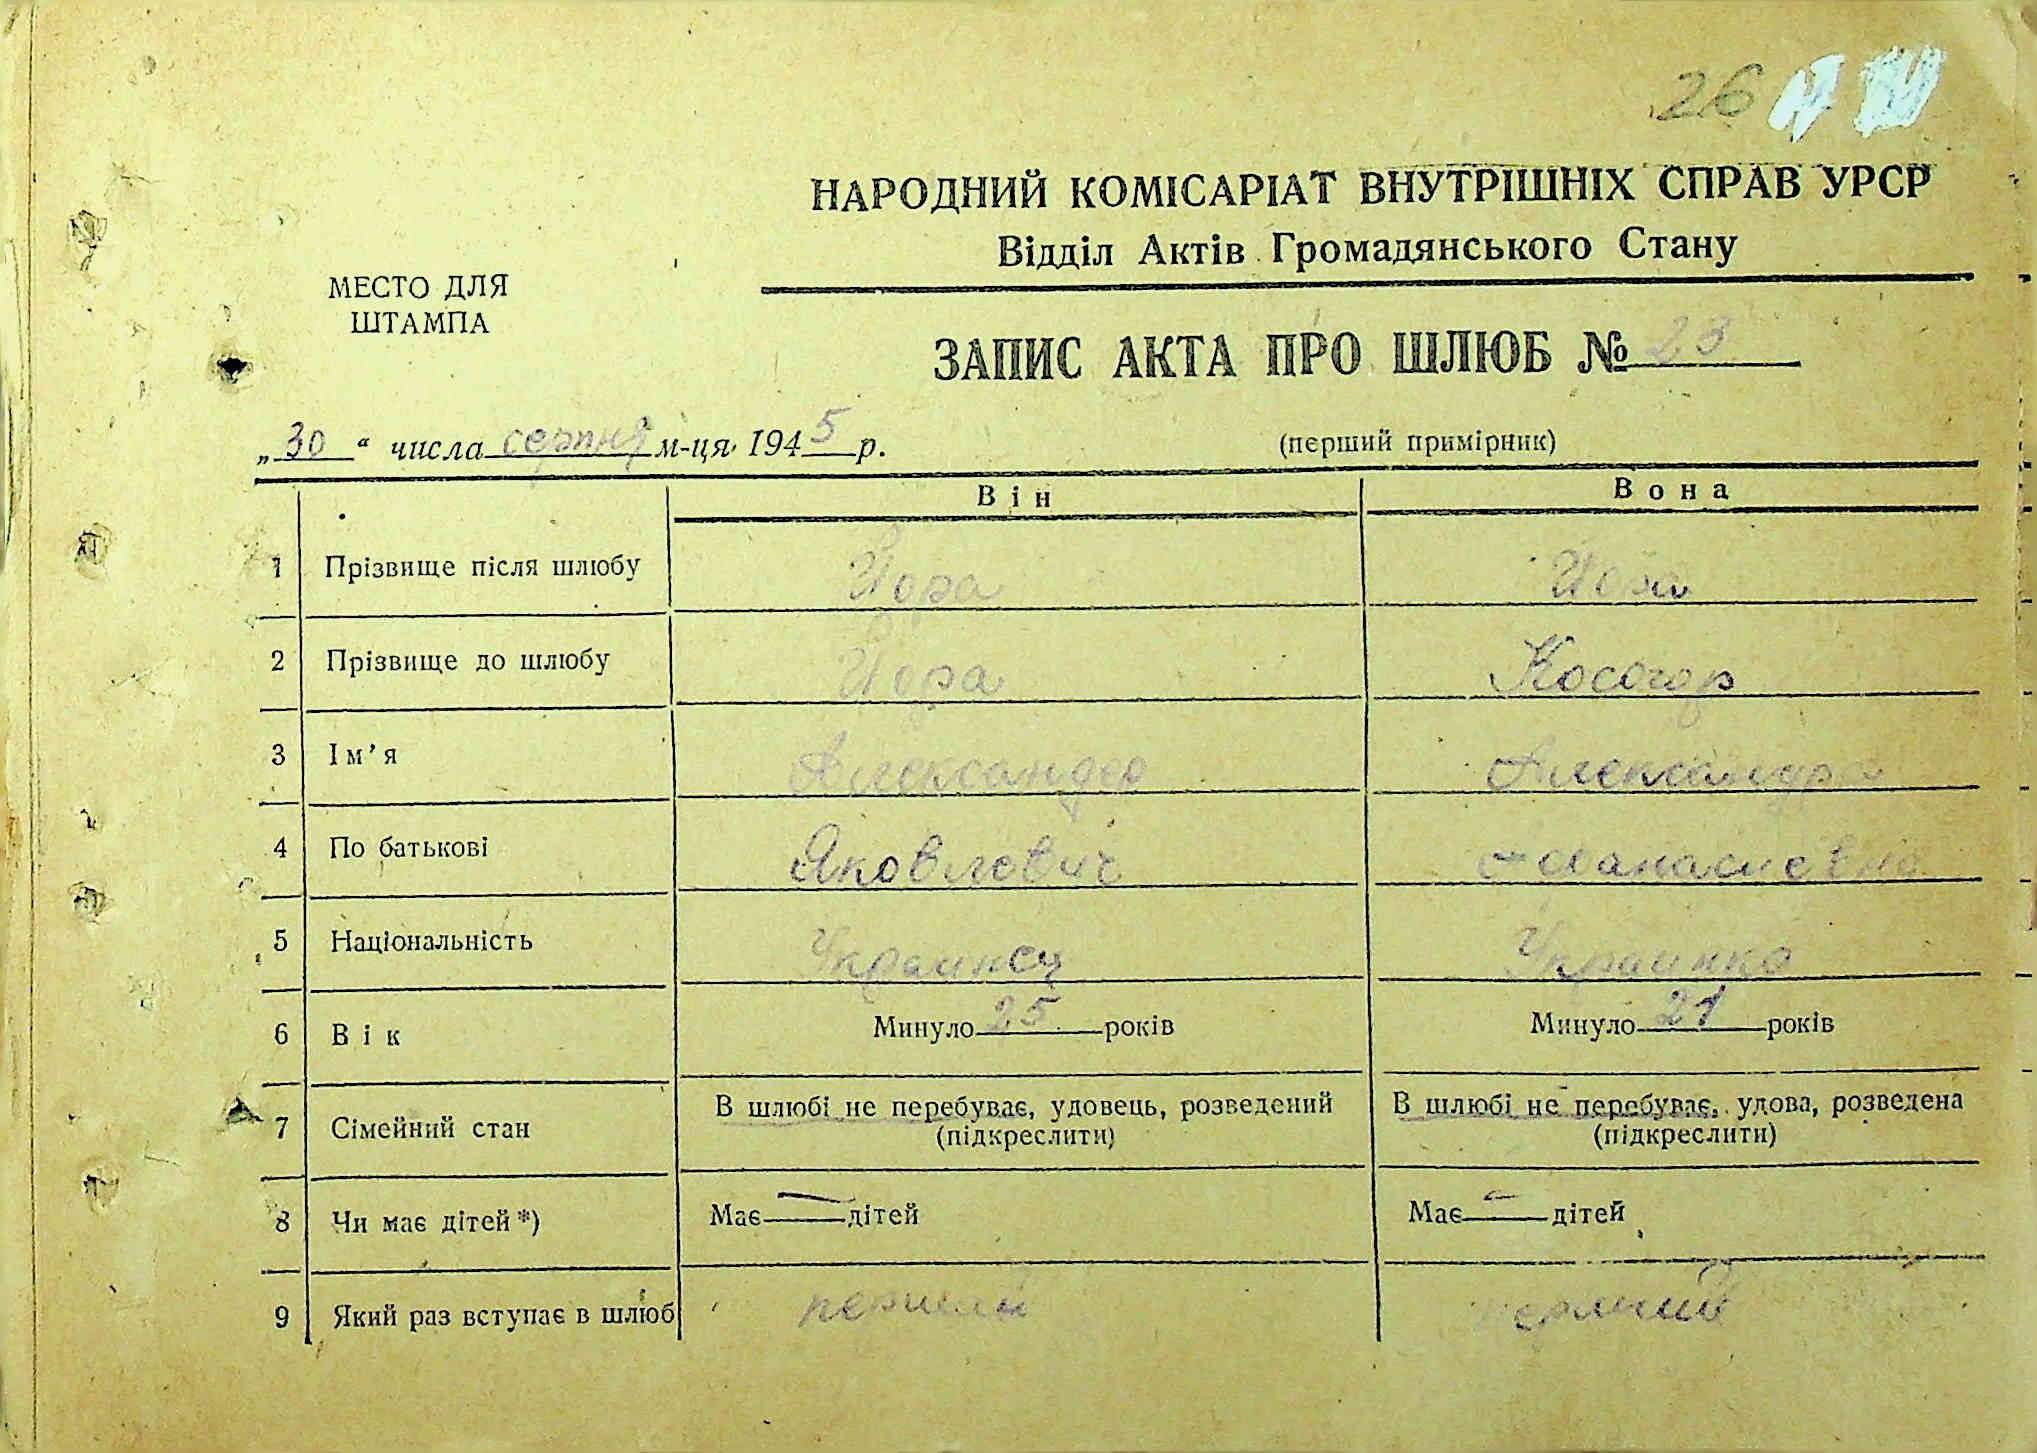 26
НАРОДНИЙ КОМІСАРІАТ ВНУТРІШНІХ СПРАВ УРСР
Відділ Актів Громадянського Стану
МЕСТО ДЛЯ
ШТАМПА
ЗАПИС АКТА ПРО ШЛЮБ № 23
„30“ числа серпня м-ця 1945 р.
(перший примірник)
Він Вона
1 Прізвище після шлюбу Йора Йора
2 Прізвище до шлюбу Йора Косогор
3 Ім’я Александер Александра
4 По батькові Яковлевич Афанасиевна
5 Національність Украинец Украинка
6 Вік Минуло 25 років Минуло 21 років
7 Сімейний стан В шлюбі не перебуває, удовець, розведений В шлюбі не перебуває, удова, розведена
(підкреслити) (підкреслити)
8 Чи має дітей *) Має — дітей Має — дітей
9 Який раз вступає в шлюб перший перший